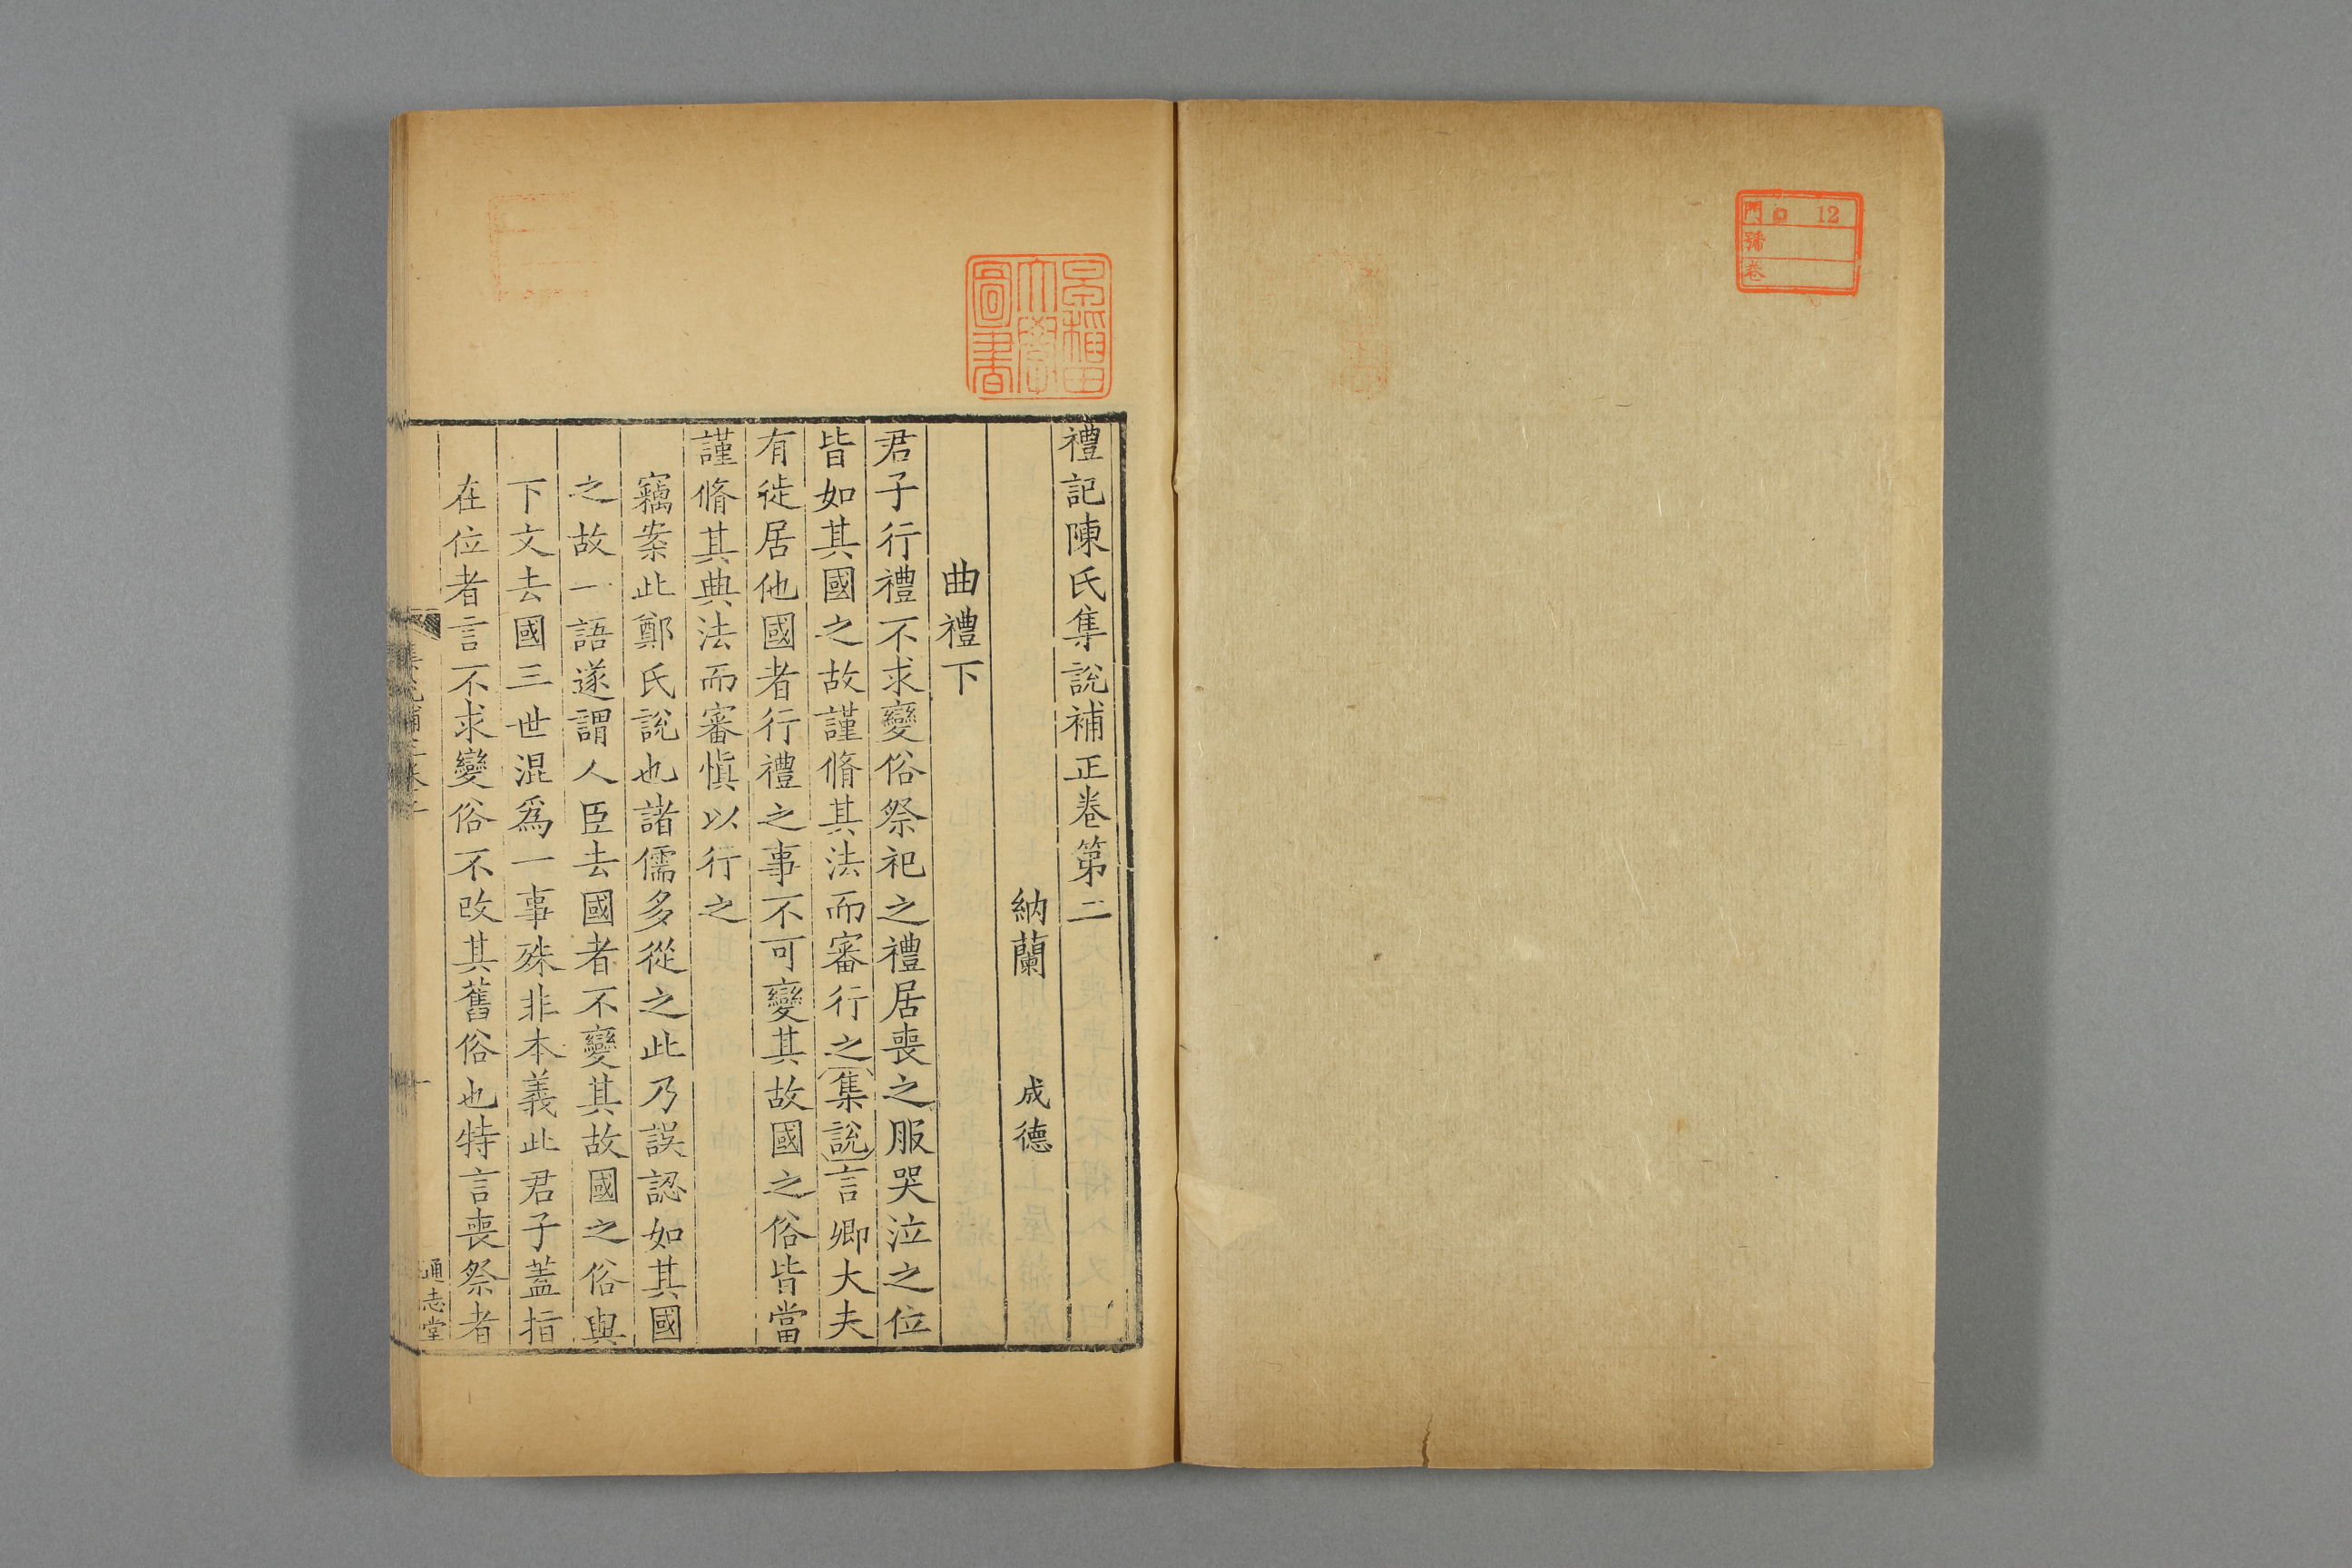 門 ロ 12
號
卷
早稻田大學圖書
禮記陳氏集說補正卷第二
納蘭 成德
曲禮下
君子行禮不求變俗祭祀之禮居喪之服哭泣之位
皆如其國之故謹脩其法而審行之集說言卿大夫
有徙居他國者行禮之事不可變其故國之俗皆當
謹脩其典法而審慎以行之
竊案此鄭氏說也諸儒多從之此乃誤認如其國
之故一語遂謂人臣去國者不變其故國之俗與
下文去國三世混爲一事殊非本義此君子蓋指
在位者言不求變俗不改其舊俗也特言喪祭者
集說補正卷二
一
通志堂